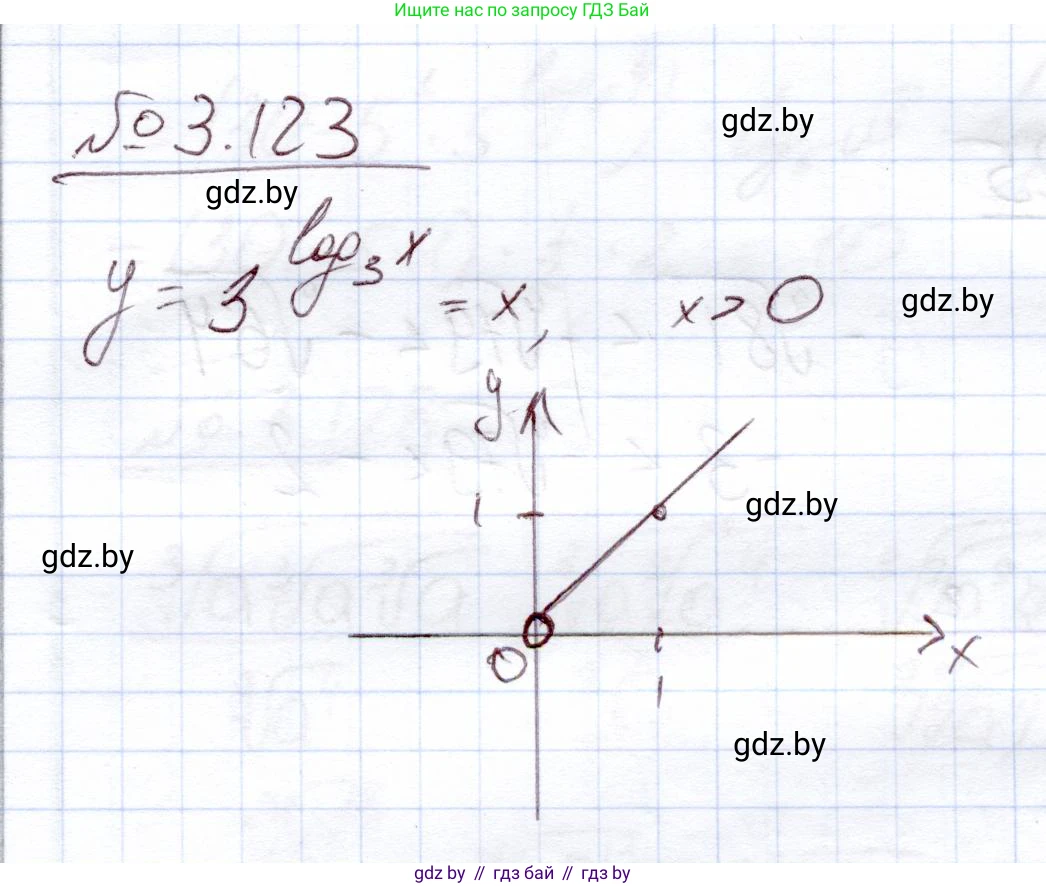 Ищите нас по запросу ГДЗ Бай
№ 3.123
gdz.by
gdz.by
y = 3^{log_3 x} = x, x > 0
gdz.by
y
1
gdz.by
gdz.by
0
x
1
gdz.by
gdz by // гдз бай // гдз by